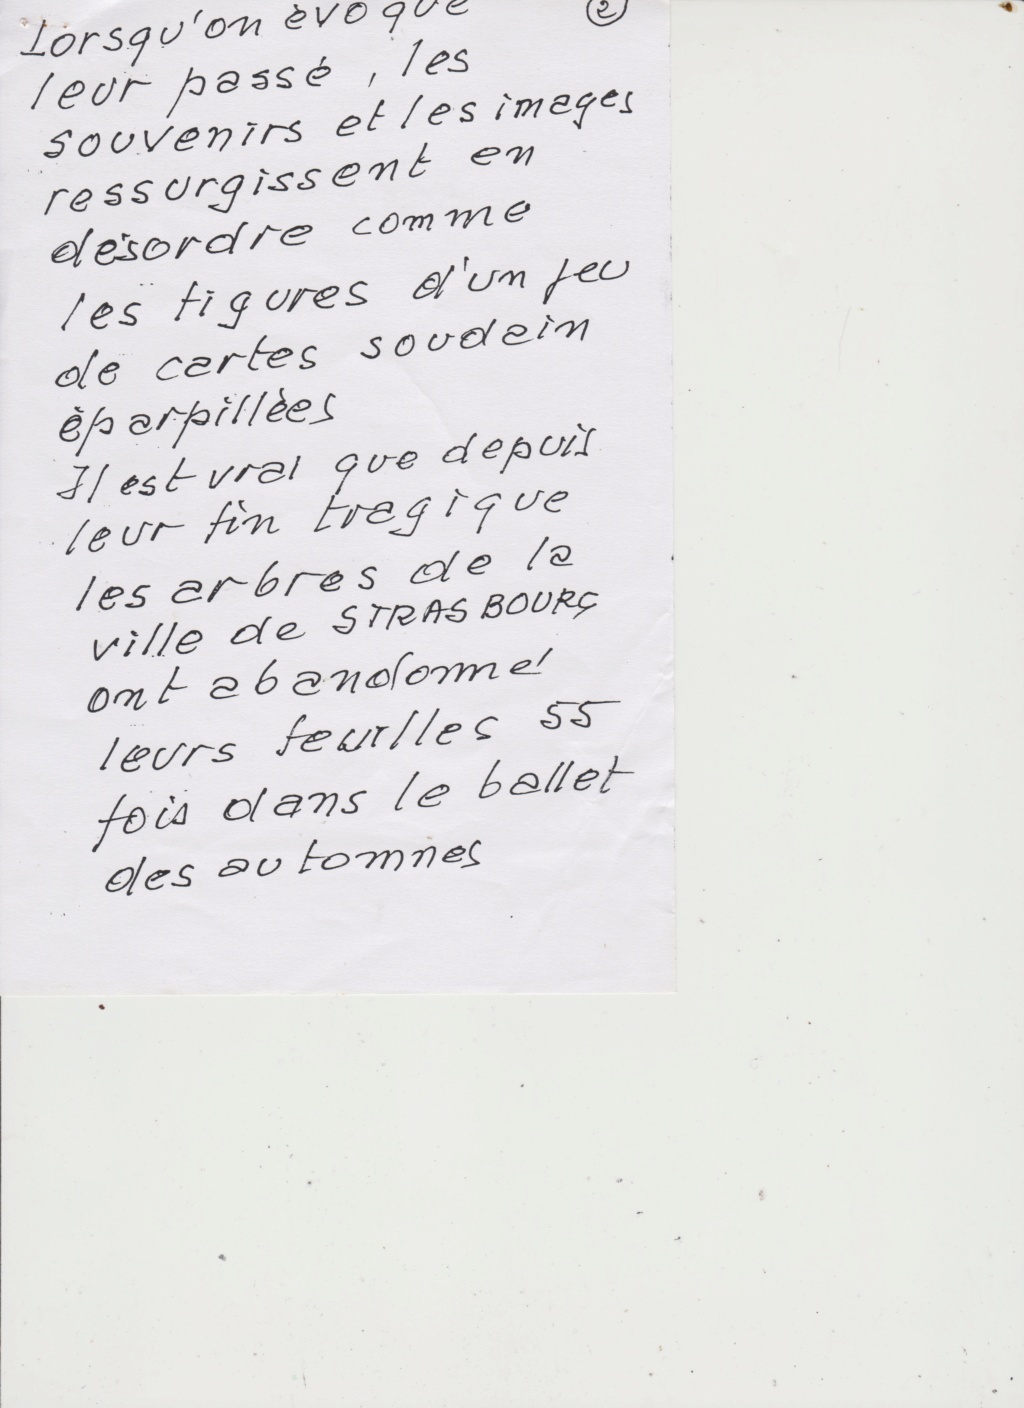 Lorsqu'on èvoque ②
leur passé, les
souvenirs et les images
ressurgissent en
désordre comme
les figures d'un jeu
de cartes soudain
èparpillèes
Il est vrai que depuis
leur fin tragique
les arbres de la
ville de STRASBOURG
ont abandonné
leurs feuilles 55
fois dans le ballet
des automnes